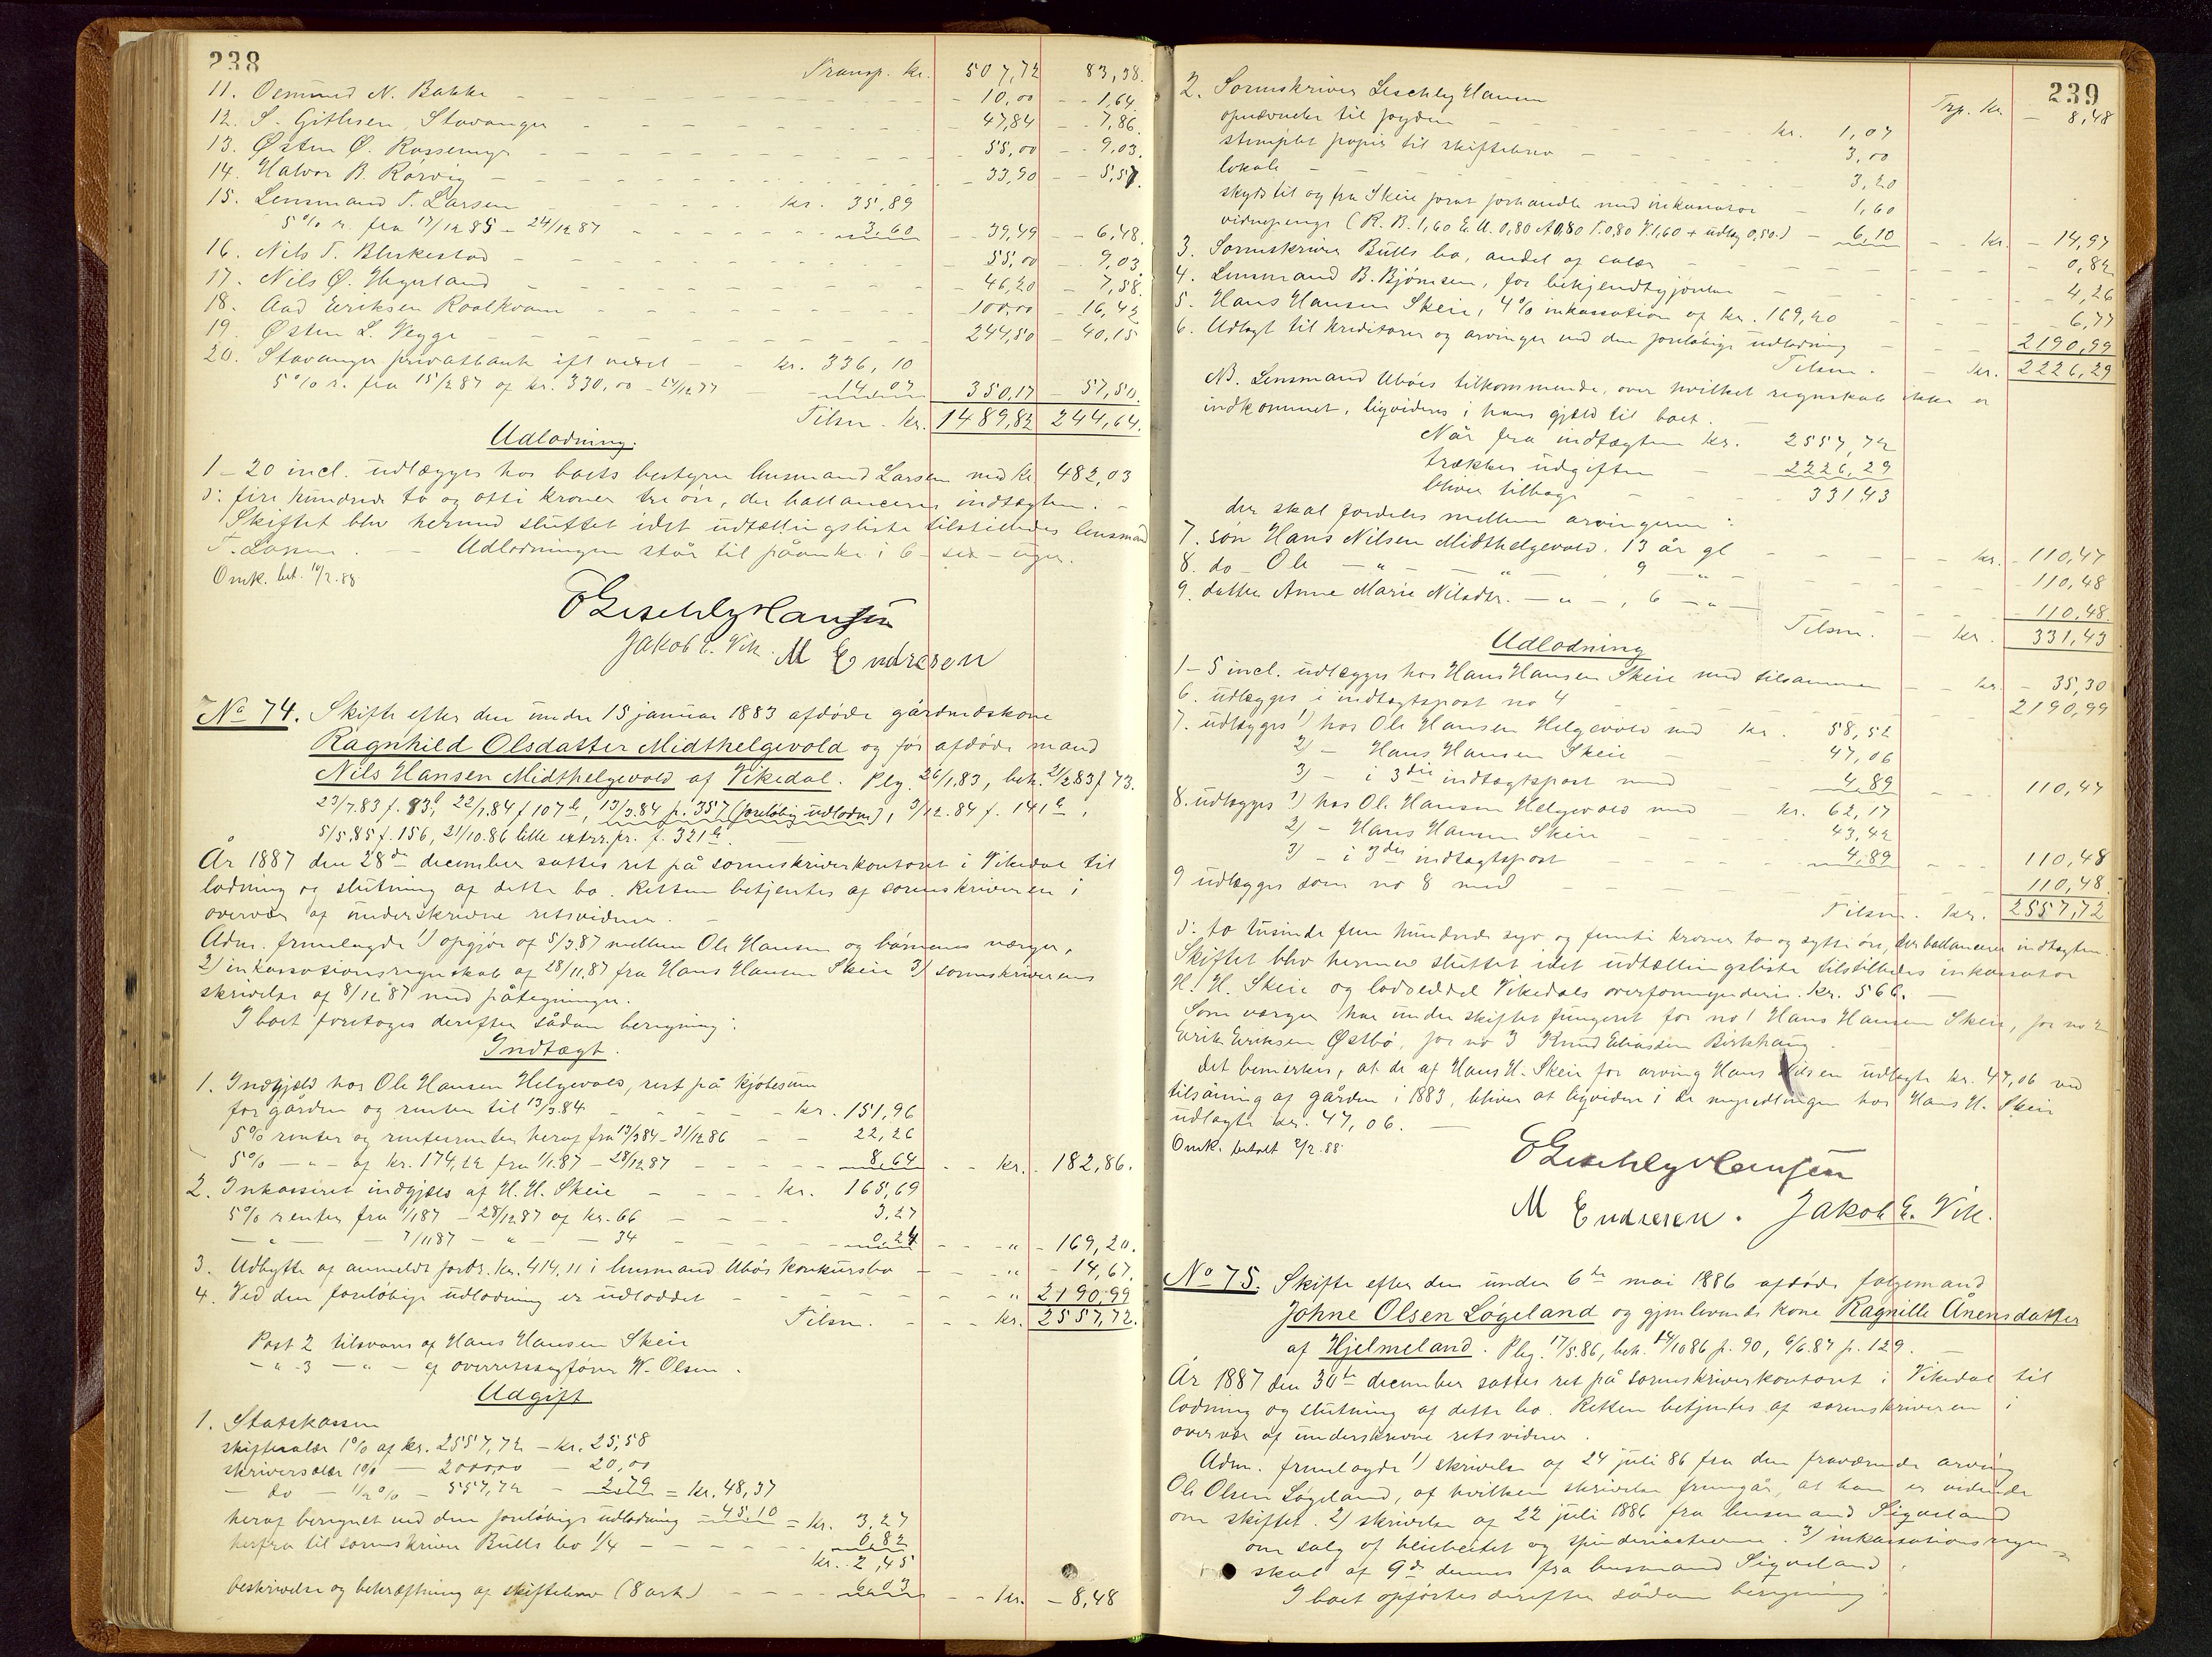 238
Transp. kr. 507,72 83,38.
11. Osmund N. Bakke - - - 10,00 - - 1,64.
12. S. Gitlesen, Stavanger - - - 47,84 - - 7,86.
13. Østen Ø. - - - 55,00 - - 9,03.
14. Halvor B. Rørvig - - - 33,90 - - 5,57.
15. Lensmand T. Larsen - - - kr. 35,89
5% r. fra 17/12 85 - 24/12 87 - - - 3,60 - 39,49 - - 6,48.
16. Nils T. - - - 55,00 - - 9,03.
17. Nils Ø. - - - 46,20 - - 7,58.
18. Aad Eriksen Roalkvam - - - 100,00 - 16,42
19. Østen L. Vegge - - - 244,50 - 40,15
20. Stavanger privatbank ift vexel - - kr. 336,10
5% r. fra 15/2 87 af kr. 330,00 - 24/12 87 - 14,07 350,17 - 57,50.
Tilsm. kr. 1489,82 244,64.
Udlodning.
1 - 20 incl. udlægges hos boets bestyrer lensmand Larsen med kr 482,03
ɔ: fire hundrede to og otti kroner tre øre, der ballancerer indtægten. -
Skiftet blev hermed sluttet idet udtællingsliste tilstilledes lensmand
T. Larsen. - Udlodningen står til påanke i 6 - sex - uger.
Omk. bet. 10/2. 88
E Leschly Hansen
Jakob E. Vik. M Endresen
No 74. Skifte efter den under 15 januar 1883 afdøde gårdmandskone
Ragnhild Olsdatter Midthelgevold og før afdøde mand
Nils Hansen Midthelgevold af Vikedal. Plg. 26/1.83, beh. 21/2 83 f 73.
23/7.83 f. 83b, 22/1.84 f 107b, 13/3.84 p. 357 (foreløbig udlodn), 3/12.84 f. 141b,
5/5.85 f. 156, 21/10.86 lille extrr.pr. f. 321b.
År 1887 den 28de december sattes ret på sorenskriverkontoret i Vikedal til
lodning og slutning af dette bo. Retten betjentes af sorenskriveren i
overvær af underskrevne retsvidner. -
Adm. fremlagde 1) opgjør af 5/3.87 mellem Ole Hansen og børnenes værger,
2) inkassationsregnskab af 28/11.87 fra Hans Hansen Skeie 3) sorenskriverens
skrivelse af 8/12 87 med påtegninger.
I boet foretoges derefter sådan beregning:
Indtægt.
1. Indgjæld hos Ole Hansen Helgevold, rest på kjøbesum
for gården og renter til 13/3.84 - - - kr. 151,96
5% renter og renters renter heraf fra 13/3 84 - 31/12 86 - - 22,26
5% - " - af kr. 174,22 fra 1/1.87 - 28/12 87 - - - 8,64 - - kr. - 182,86.
2. Inkasseret indgjæld af H. H. Skeie - - - kr. 165,69
5% renter fra 1/1 87 - 28/12 87 af kr. 66 - - - 3,27
- " - - 7/11 87 - " - 34 - - - 0,24 - - " - 169,20.
3. Udbytte af anmeldt fordr. kr. 414,11 i lensmand Ubøs konkursbo - - " - 14,67.
4. Ved den foreløbige udlodning er udloddet - - - " 2190,99
Tilsm. - - - kr. 2557,72.
Post 2 tilsvares af Hans Hansen Skeie
- " - 3 - " - af overretssagfører W. Olsen.
Udgift
1. Statskassen
skiftesalær 1% af kr. 2557,72 - kr. 25,58
skriversalær 1% - 2000,00 - 20,00
- do - 1/2% - 557,72 - 2,79 = kr. 48,37
heraf beregnet ved den foreløbige udlodning - 45.10 = kr. 3,27
herfra til sorenskriver Bulls bo 1/4 - - - 0,82
kr. 2,45
beskrivelse og bekræftning af skiftebrev (8 ark) - - - 6,03 - - kr. - 8,48
239
Trp. kr. - 8,48
2. Sorenskriver Leschly Hansen
opnævnelse til fogden - - - kr. 1,07
stemplet papir til skiftebrev - - - 3,00
lokale - - - 3,20
skyds til og fra Skeie forat forhandle med inkassator - 1,60
vidnepenge (R. B. 1,60 E. U. 0,80 A 0,80 T. 0,80 V. 1,60 + udlæg 0,50.) - 6,10 - - kr. - 14,97
3. Sorenskriver Bulls bo, andel af salær - - - 0,82
4. Lensmand B. Bjørnsen, for bekjendtgjørelse - - - 4,26
5. Hans Hansen Skeie, 4% inkassation af kr. 169,20 - - - 6,77
6. Udlagt til kreditorer og arvinger ved den foreløbige udlodning - - - 2190,99
Tilsm. - kr. 2226,29
NB. Lensmand Ubøes tilkommende, over hvilket regnskab ikke er
indkommet, liqvideres i hans gjæld til boet. -
Når fra indtægten kr. 2557,72
trækkes udgiften - - 2226,29
bliver tilbage - - - 331,43
der skal fordeles mellem arvingerne:
7. søn Hans Nilsen Midthelgevold. 13 år gl - - - kr. - 110,47
8. do - Ole - " - " - , 9 - " - - - - 110,48
9. datter Anne Marie Nilsdtr. - " - , 6 - " - - - - 110,48.
Tilsm. - kr. 331,43
Udlodning
1 - 5 incl. udlægges hos Hans Hansen Skeie med tilsammen - kr. - 35,30
6. udlægges i indtægtspost no 4 - - - 2190,99
7. udlægges 1) hos Ole Hansen Helgevold med kr. 58,52
2) - Hans Hansen Skeie - - 47,06
3) - i 3die indtægtspost med - - 4,89 - - - 110,47
8. udlægges 1) hos Ole Hansen Helgevold med - kr. 62,17
2) - Hans Hansen Skeie - - - 43,42
3) - i 3die indtægtspost - - - 4,89 - - - 110,48
9 udlægges som no 8 med - - - 110,48.
Tilsm. kr. 2557,72
ɔ: to tusinde fem hundrede syv og femti kroner to og sytti øre, der ballancerer indtægten.
Skiftet blev hermed sluttet idet udtællingsliste tilstilledes inkassator
H. H. Skeie og lodseddel Vikedals overformynderi. kr. 566. -
Som værger har under skiftet fungeret for no 1 Hans Hansen Skeie, for no 2
Erik Eriksen Østbø, for no 3 Knud Eliassen Birkhaug.
Det bemerkes, at de af Hans H. Skeie for arving Hans Nilsen udlagte kr. 47,06 ved
tilsåning af gården i 1883, bliver at liqvidere i de myndlingen hos Hans H. Skeie
udlagte kr. 47,06. -
Omk. betalt 2/2. 88.
E Leschly Hansen
M Endresen. Jakob E. Vik.
No 75. Skifte efter den under 6te mai 1886 afdøde følgemand
Johne Olsen Løgeland og gjenlevende kone Ragnille Ånensdatter
af Hjelmeland. Plg. 17/5.86, beh. 14/10 86 p. 90, 6/6.87 p. 129. -
År 1887 den 30te december sattes ret på sorenskriverkontoret i Vikedal til
lodning og slutning af dette bo. Retten betjentes af sorenskriveren i
overvær af underskrevne retsvidner.
Adm. fremlagde 1) skrivelse af 24 juli 86 fra den fraværende arving
Ole Olsen Løgeland, af hvilken skrivelse fremgår, at han er vidende
om skiftet. 2) skrivelse af 22 juli 1886 fra lensmand Sigveland
om salg af og 3) inkassationsregn-
skab af 9de dennes fra lensmand Sigveland.
I boet opførtes derefter sådan beregning: